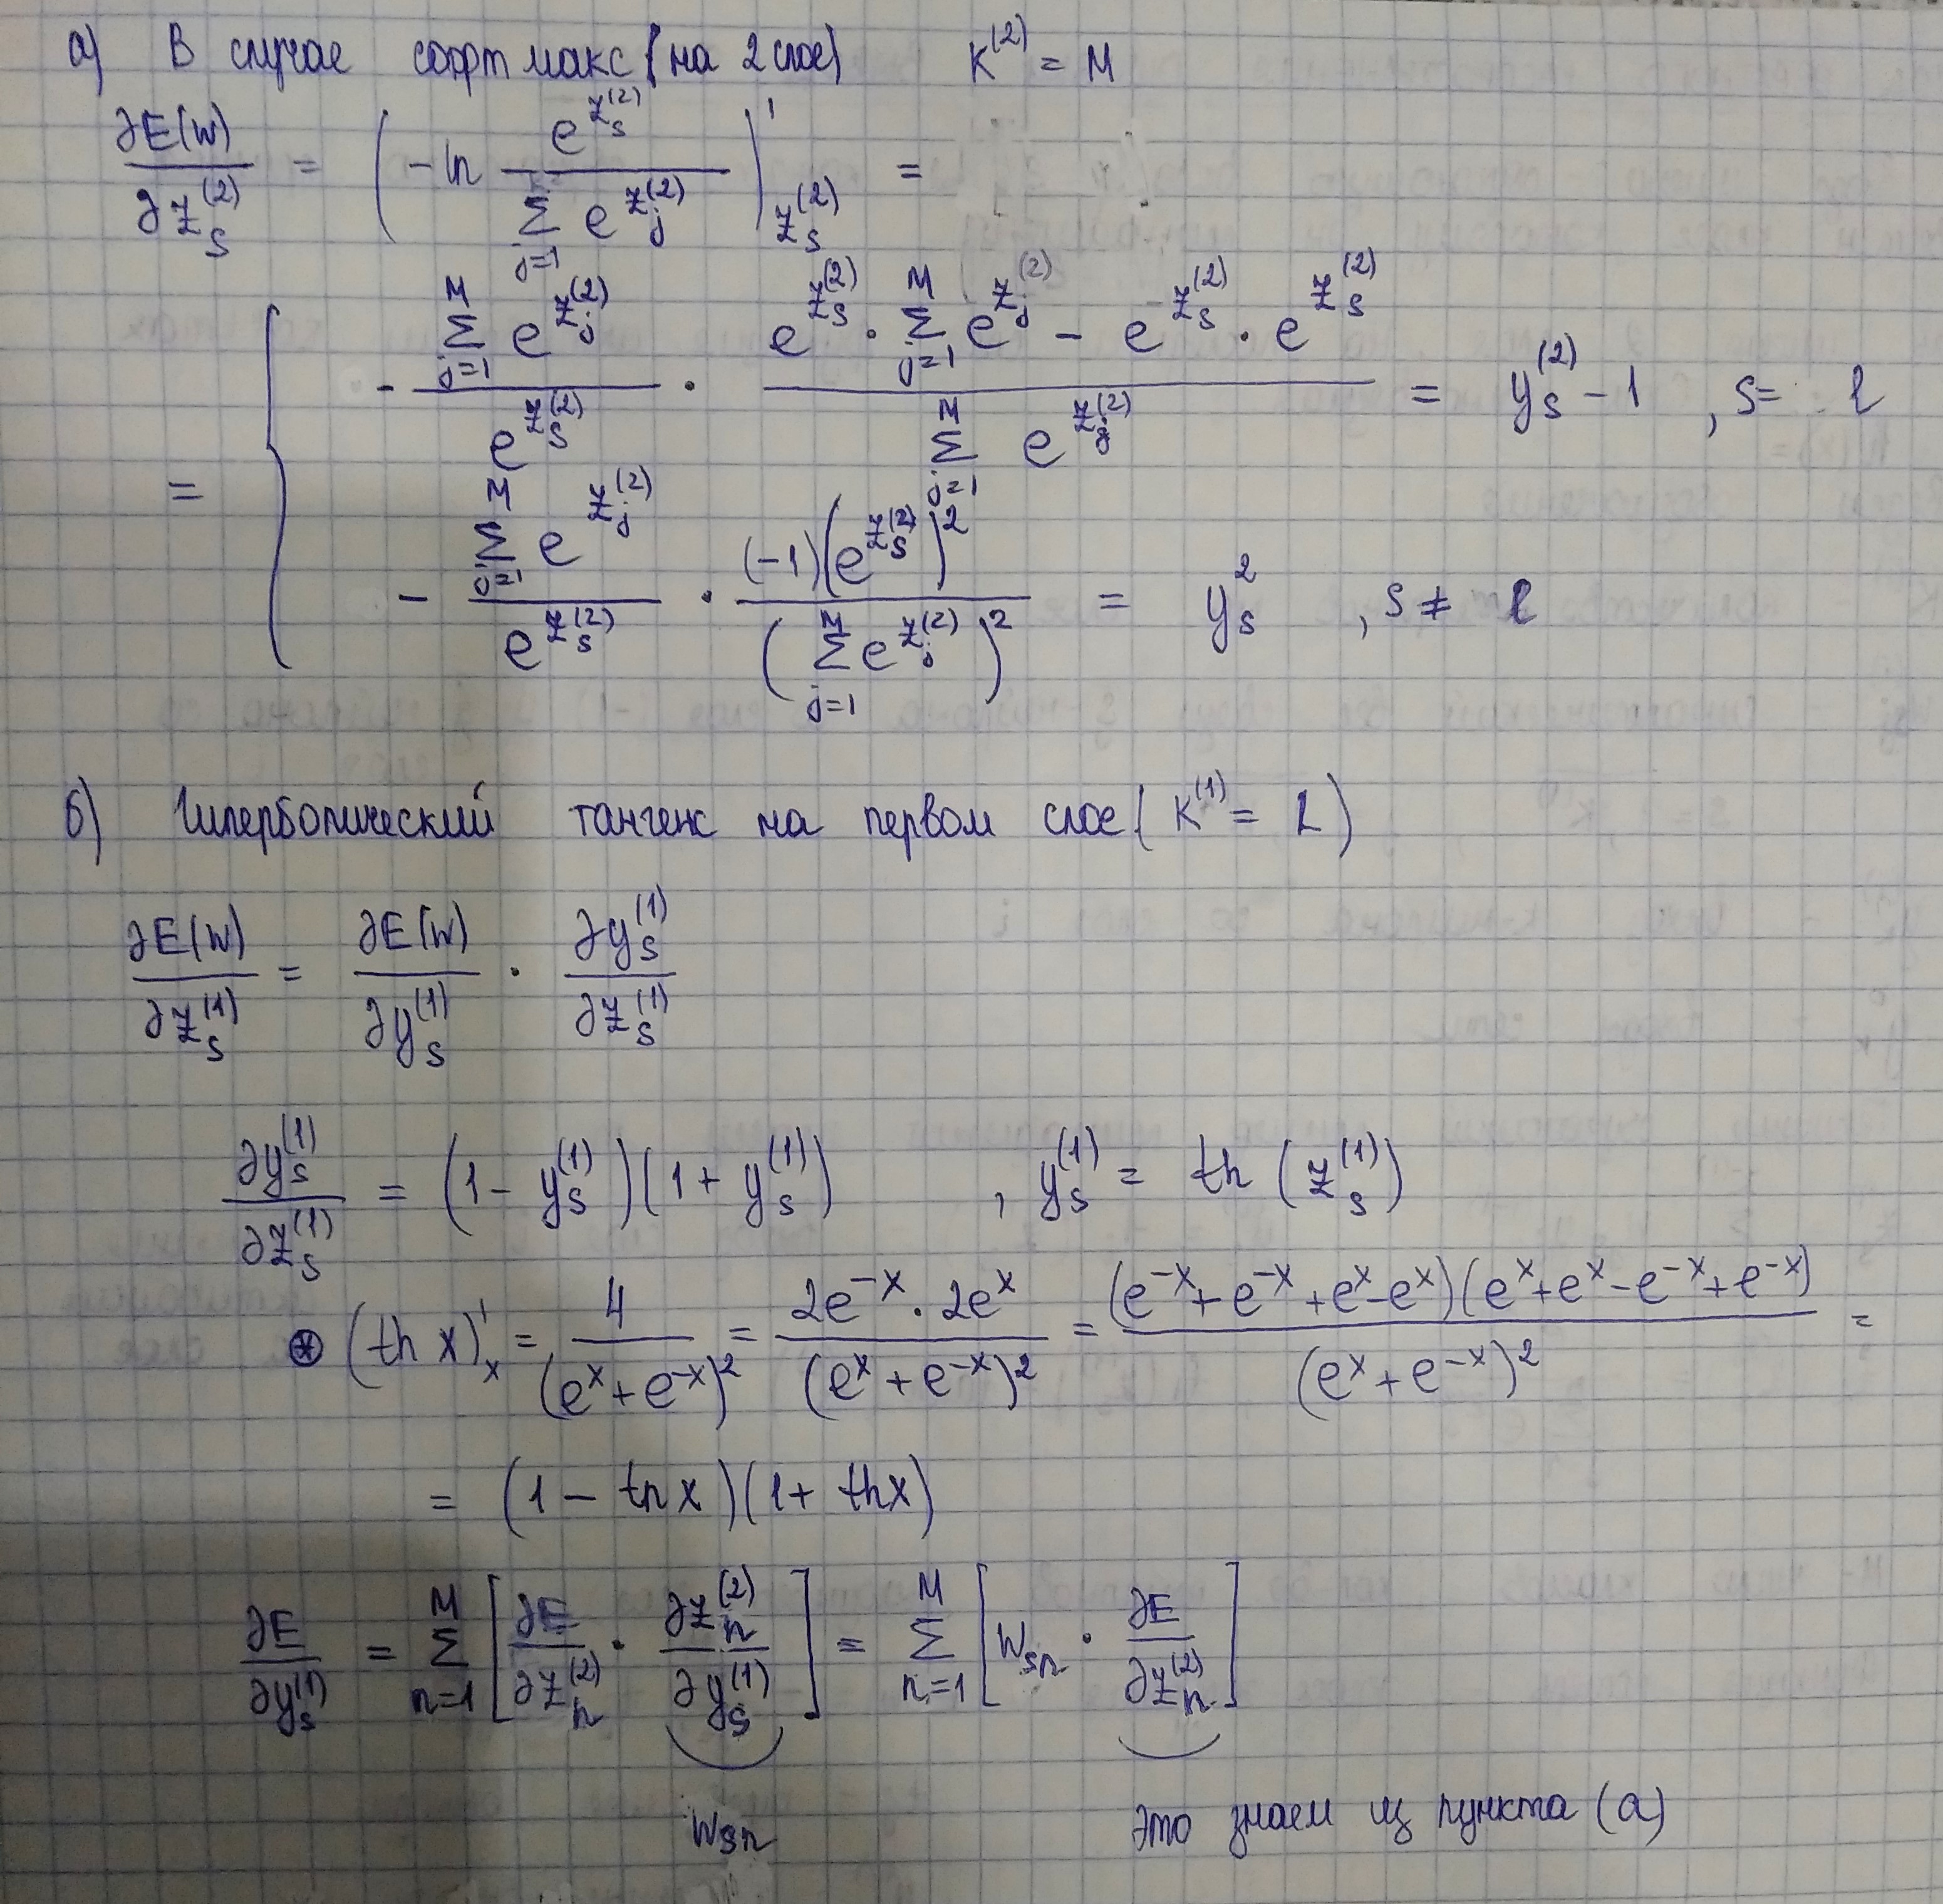 а) В случае софтмакс (на 2 слое) K^{(2)} = M
∂E(w)/∂z_s^{(2)} = (-ln e^{z_s^{(2)}} / Σ_{j=1} e^{z_j^{(2)}})'_{z_s^{(2)}} =
= { - Σ_{j=1}^{M} e^{z_j^{(2)}} / e^{z_s^{(2)}} · (e^{z_s^{(2)}} · Σ_{j=1}^{M} e^{z_j^{(2)}} - e^{z_s^{(2)}} · e^{z_s^{(2)}}) / Σ_{j=1}^{M} e^{z_j^{(2)}} = y_s^{(2)} - 1 , s = l
- Σ_{j=1}^{M} e^{z_j^{(2)}} / e^{z_s^{(2)}} · (-1)(e^{z_s^{(2)}})^2 / (Σ_{j=1}^{M} e^{z_j^{(2)}})^2 = y_s^2 , s ≠ l
б) Гиперболический тангенс на первом слое (K^{(1)} = L)
∂E(w)/∂z_s^{(1)} = ∂E(w)/∂y_s^{(1)} · ∂y_s^{(1)}/∂z_s^{(1)}
∂y_s^{(1)}/∂z_s^{(1)} = (1 - y_s^{(1)})(1 + y_s^{(1)}) , y_s^{(1)} = th (z_s^{(1)})
⊛ (th x)'_x = 4/(e^x + e^{-x})^2 = 2e^{-x} · 2e^x/(e^x + e^{-x})^2 = (e^{-x} + e^{-x} + e^x - e^x)(e^x + e^x - e^{-x} + e^{-x})/(e^x + e^{-x})^2 =
= (1 - th x)(1 + th x)
∂E/∂y_s^{(1)} = Σ_{n=1}^{M} [∂E/∂z_n^{(2)} · ∂z_n^{(2)}/∂y_s^{(1)}] = Σ_{n=1}^{M} [w_{sn} · ∂E/∂z_n^{(2)}]
w_{sn} это знаем из пункта (а)